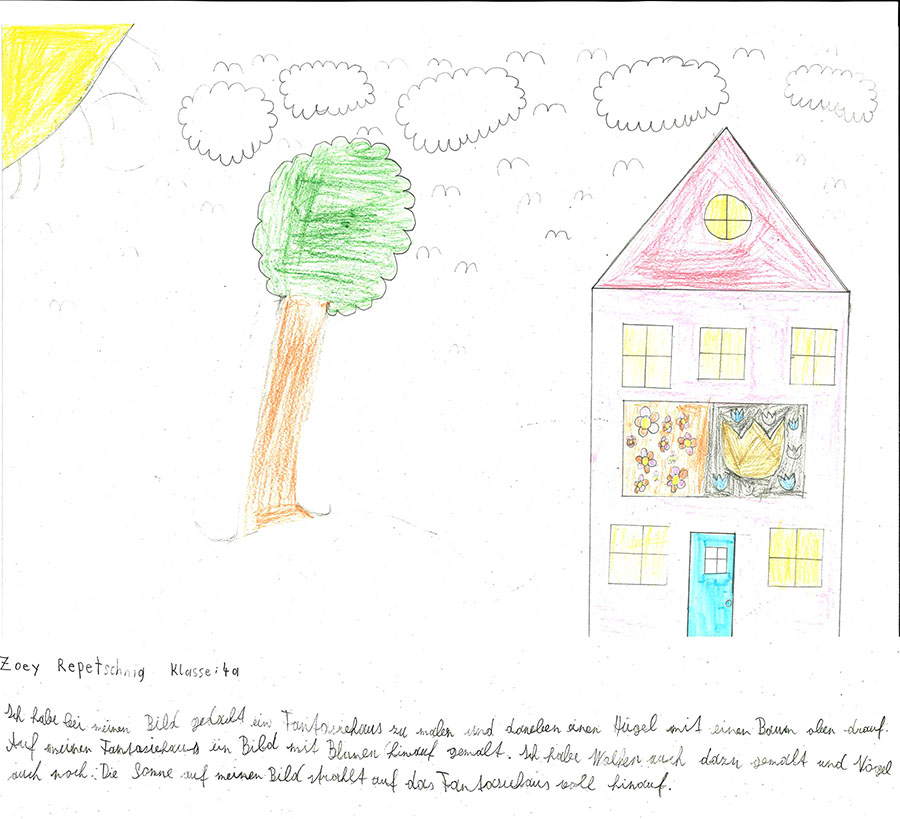 Zoey Repetschnig Klasse: 4a
Ich habe bei meinen Bild gedacht ein Fantasiehaus zu malen und daneben einen Hügel mit einen Baum oben drauf.
Auf meinen Fantasiehaus ein Bild mit Blumen hinauf gemalt. Ich habe Wolken auch dazu gemalt und Vögel
auch noch. Die Sonne auf meinen Bild strahlt auf das Fantasiehaus voll hinauf.